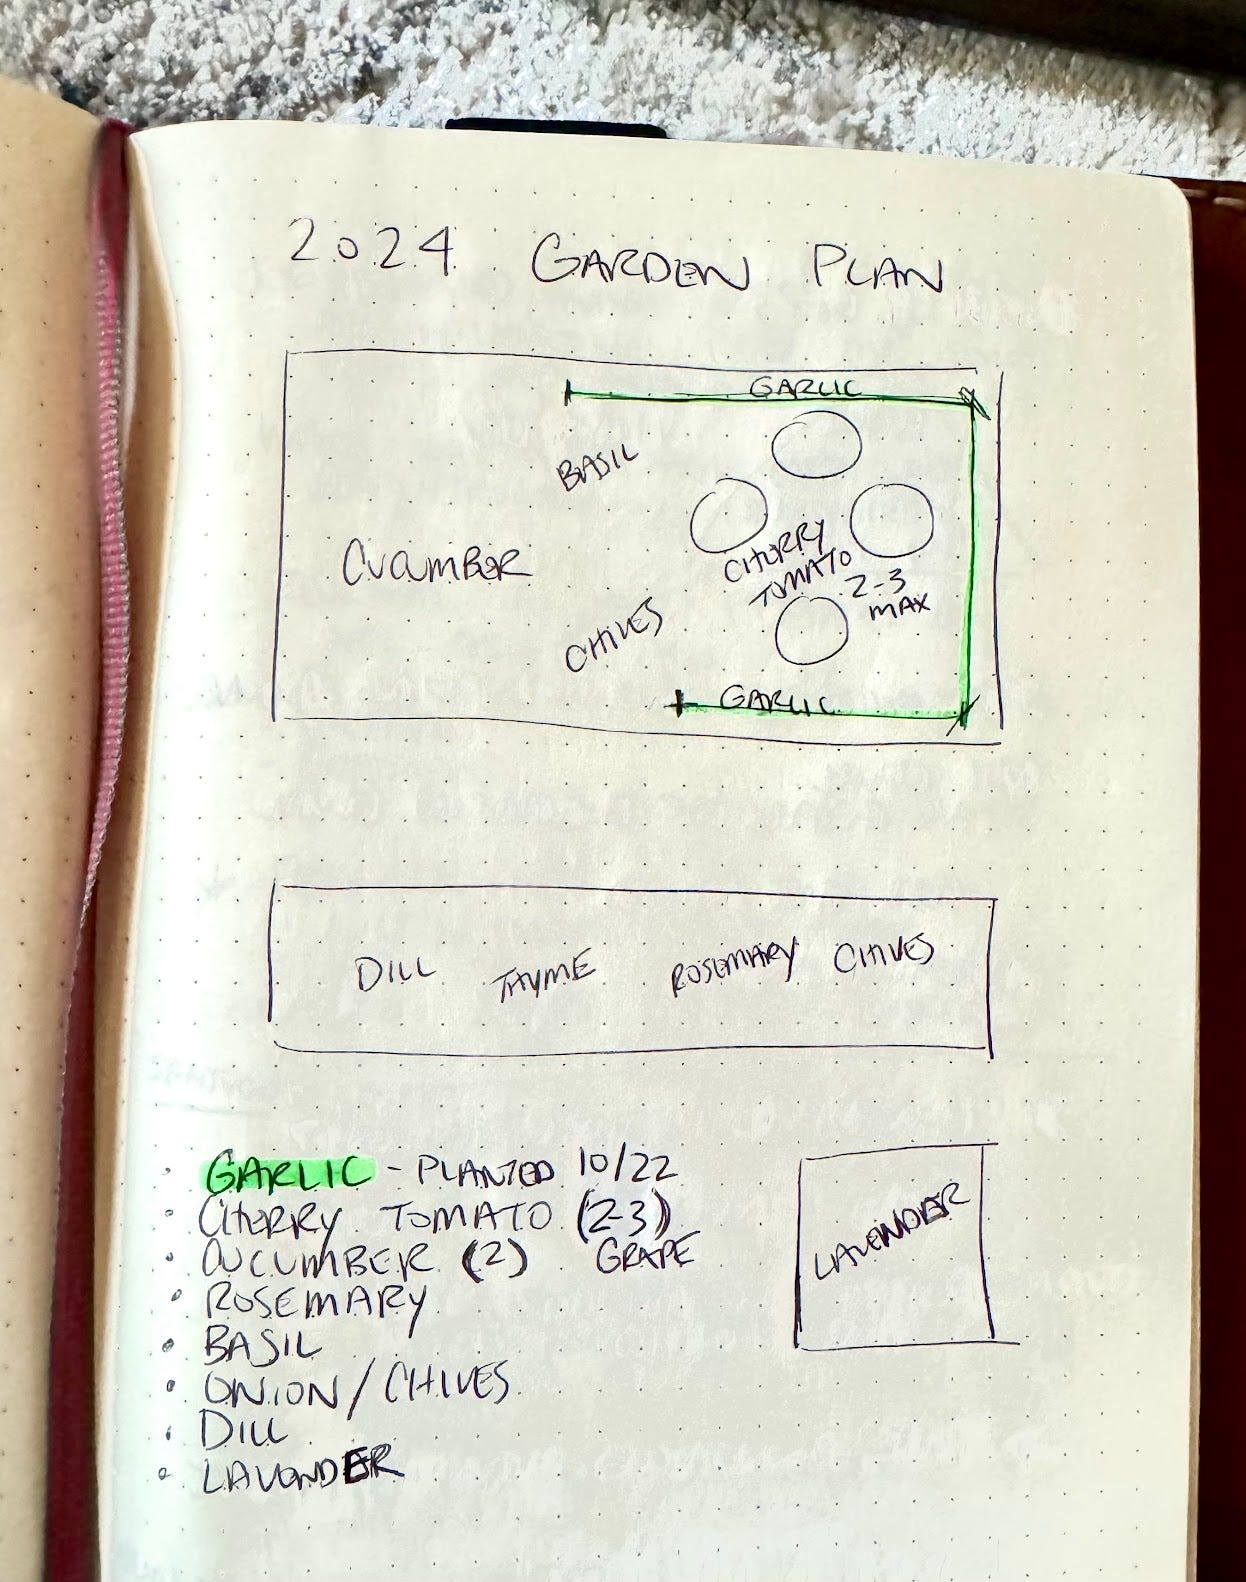 2024 GARDEN PLAN
GARLIC
BASIL
CUCUMBER
CHERRY
TOMATO
2-3
MAX
CHIVES
GARLIC
DILL THYME ROSEMARY CHIVES
GARLIC - PLANTED 10/22
CHERRY TOMATO (2-3)
CUCUMBER (2) GRAPE
ROSEMARY
BASIL
ONION/CHIVES
DILL
LAVENDER
LAVENDER